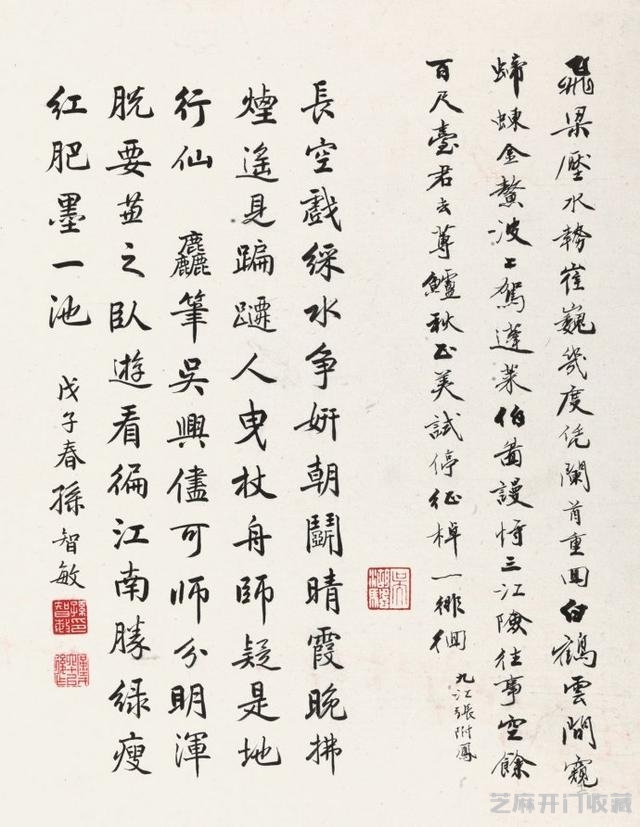 飛梁壓水勢崔巍幾度凭闌首重回白鶴雲間窺
螮蝀金鰲波上駕蓬萊伯圖謾恃三江險往事空餘
百尺臺君去蓴鱸秋正美試停征棹一徘徊
九江張附鳳
長空戲綵水爭妍朝鬭晴霞晚拂
煙遙見蹁躚人曳杖舟師疑是地
行仙 麤筆吳興儘可師分明渾
脫要兼之臥遊看徧江南勝綠瘦
紅肥墨一池
戊子春孫智敏
孫印智敏
芝麻开门收藏